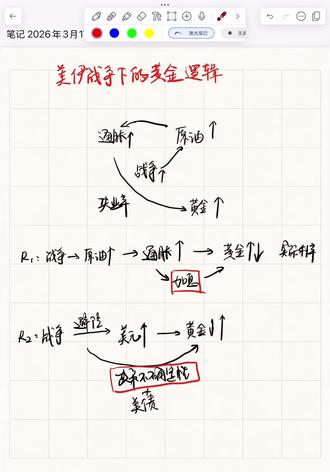 笔记 2026年3月1
美伊战争下的黄金逻辑
通胀↑ 原油↑
战争↑
失业率 黄金↑
R₁: 战争→原油↑→通胀↑→黄金↑↓ 实际利率
加息
避险
R₂: 战争→美元↑→黄金↓↑
不确定性
美债